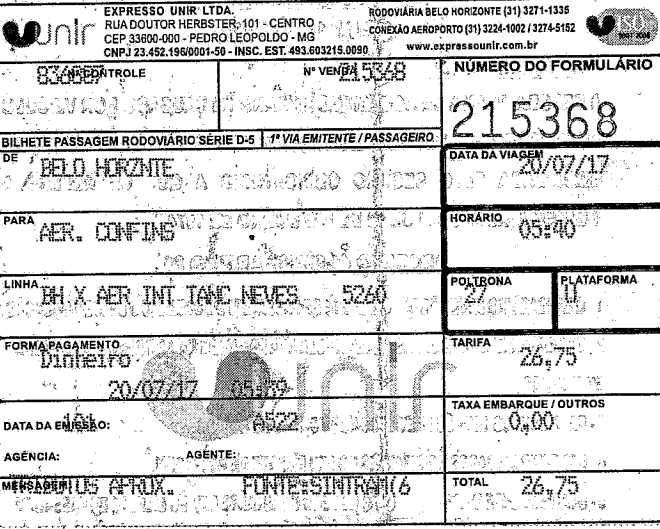 unir
EXPRESSO UNIR LTDA.
RUA DOUTOR HERBSTER, 101 - CENTRO
CEP 33600-000 - PEDRO LEOPOLDO - MG
CNPJ 23.452.196/0001-50 - INSC. EST. 493.603215.0090
RODOVIÁRIA BELO HORIZONTE (31) 3271-1335
CONEXÃO AEROPORTO (31) 3224-1002 / 3274-5152
www.expressounir.com.br
ISO
Nº CONTROLE
Nº VENDA 215368
NÚMERO DO FORMULÁRIO
215368
BILHETE PASSAGEM RODOVIÁRIO SÉRIE D-5 1ª VIA EMITENTE / PASSAGEIRO
DE
BELO HORZNTE
DATA DA VIAGEM
20/07/17
PARA
AER. CONFINS
HORÁRIO
05:40
LINHA
BH X AER INT TANC NEVES 5260
POLTRONA
27
PLATAFORMA
FORMA PAGAMENTO
Dinheiro
20/07/17 05:39
TARIFA
26,75
unir
DATA DA EMISSÃO:
101
A522
TAXA EMBARQUE / OUTROS
0,00
AGÊNCIA:
AGENTE:
MENSAGEM
APROX. FONTE:SINTRAM(6
TOTAL
26,75